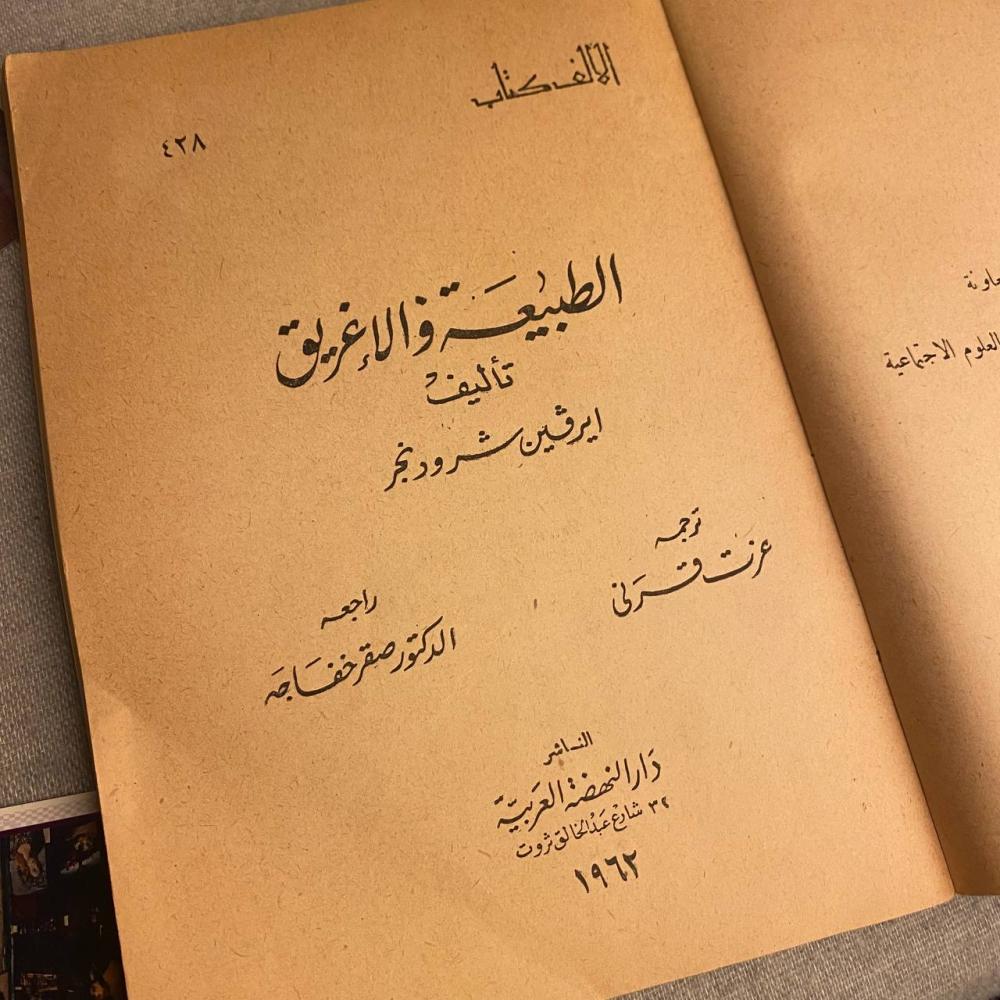 الألف كتاب
٤٢٨
الطبيعة والإغريق
تأليف
ايرڤين شرودنجر
ترجمه
عزت قرنى
راجعه
الدكتور صقر خفاجه
الناشر
دار النهضة العربية
٣٢ شارع عبد الخالق ثروت
١٩٦٢
العلوم الاجتماعية